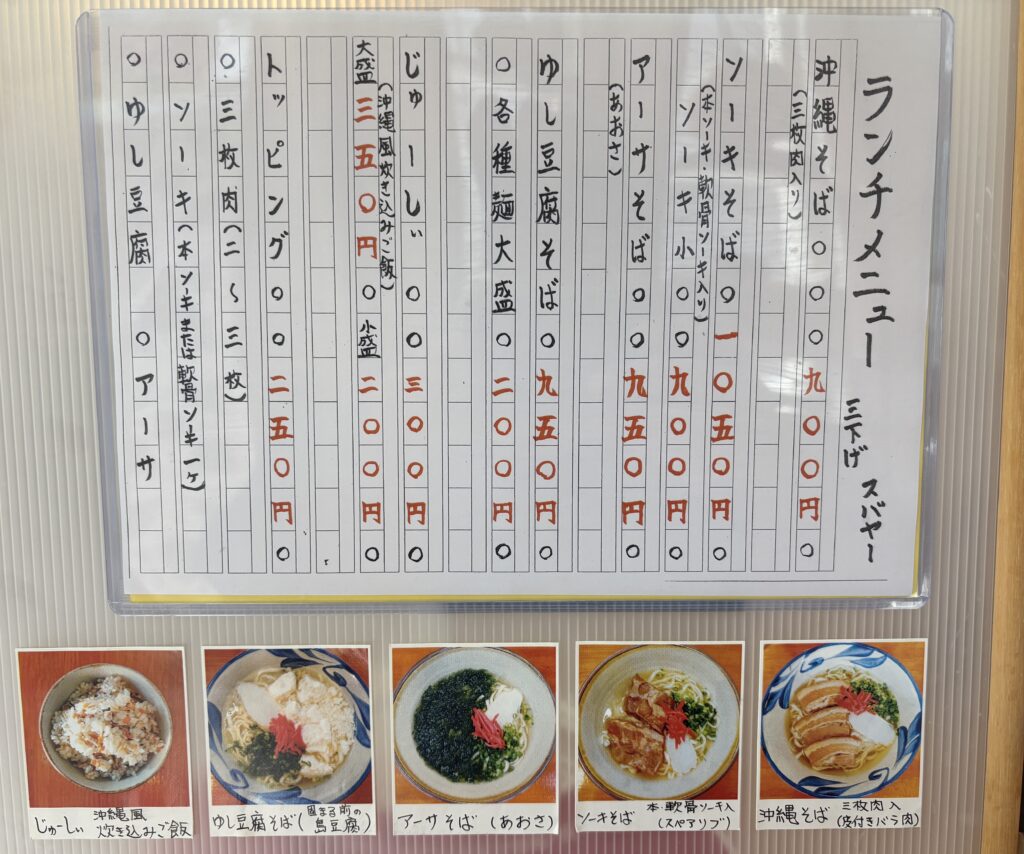 ランチメニュー
三下げ スバヤー
沖縄そば○○○九〇〇円○
(三枚肉入り)
ソーキそば○一〇五〇円○
(本ソーキ・軟骨ソーキ入り)
ソーキ小○○九〇〇円○
アーサそば○○九五〇円○
(あおさ)
ゆし豆腐そば○○九五〇円○
○各種麺大盛○二〇〇円○
じゅーしぃ○○三〇〇円○
(沖縄風炊き込みご飯)
大盛三五〇円○小盛二〇〇円○
トッピング○○二五〇円○
○三枚肉(二〜三枚)
○ソーキ(本ソーキまたは軟骨ソーキ一ヶ)
○ゆし豆腐 ○アーサ
じゅーしぃ 沖縄風炊き込みご飯
ゆし豆腐そば(固まる前の島豆腐)
アーサそば (あおさ)
ソーキそば 本・軟骨ソーキ入(スペアリブ)
沖縄そば 三枚肉入(皮付きバラ肉)